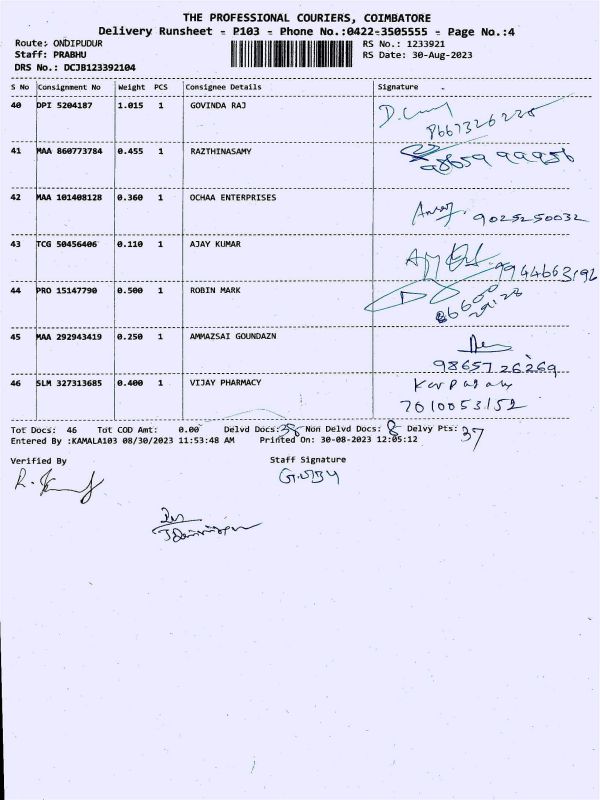 THE PROFESSIONAL COURIERS, COIMBATORE
Delivery Runsheet - P103 - Phone No.:0422-3505555 - Page No.:4
Route: ONDIPUDUR RS No.: 1233921
Staff: PRABHU RS Date: 30-Aug-2023
DRS No.: DCJB123392104
S No Consignment No Weight PCS Consignee Details Signature
40 DPI 5204187 1.015 1 GOVINDA RAJ
8667326228
41 MAA 860773784 0.455 1 RAZTHINASAMY
98659 99956
42 MAA 101408128 0.360 1 OCHAA ENTERPRISES
9025250032
43 TCG 50456406 0.110 1 AJAY KUMAR
9944663192
44 PRO 15147790 0.500 1 ROBIN MARK
45 MAA 292943419 0.250 1 AMMAZSAI GOUNDAZN
98657 26269
46 SLM 327313685 0.400 1 VIJAY PHARMACY
7010053152
Tot Docs: 46 Tot COD Amt: 0.00 Delvd Docs: 38 Non Delvd Docs: 8 Delvy Pts: 37
Entered By :KAMALA103 08/30/2023 11:53:48 AM Printed On: 30-08-2023 12:05:12
Verified By Staff Signature